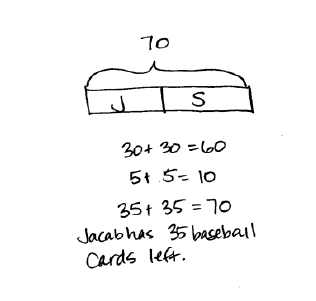 70
J S
30+ 30 = 60
5+ 5 = 10
35+ 35 = 70
Jacab has 35 baseball
Cards left.